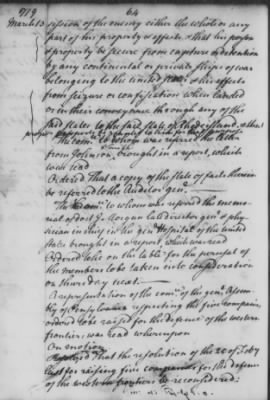 1779
64
March 1. session of the enemy either the whole or any
part of his property & effects & that his person
& property be secure from capture & detention
by any continental or private ships of war
belonging to the United States & his effects
from seizure or confiscation when landed
or in their conveyance through any of the
said states to the said state of
The Com. to whom was referred the letter
from Johnson, brought in a report, which
was read
Ordered That a copy of the state of facts therein
be referred to the Auditor gen.
The Com. to whom was referred the memo
rial of doct. J. Morgan late director gen. & phy
sician in chief in the gen. Hospital of the united
states brought in a report, which was read
Ordered to lie on the table for the perusal of
the members to be taken into consideration
on thursday next
A representation of the com. of the gen. Assem
bly of Pensylvania respecting the five companies
ordered to be raised for the defence of the western
frontiers, was read whereupon
On motion
Resolved That the resolution of the 20 of feby
last for raising five companies for the defence
of the western frontiers be reconsidered: